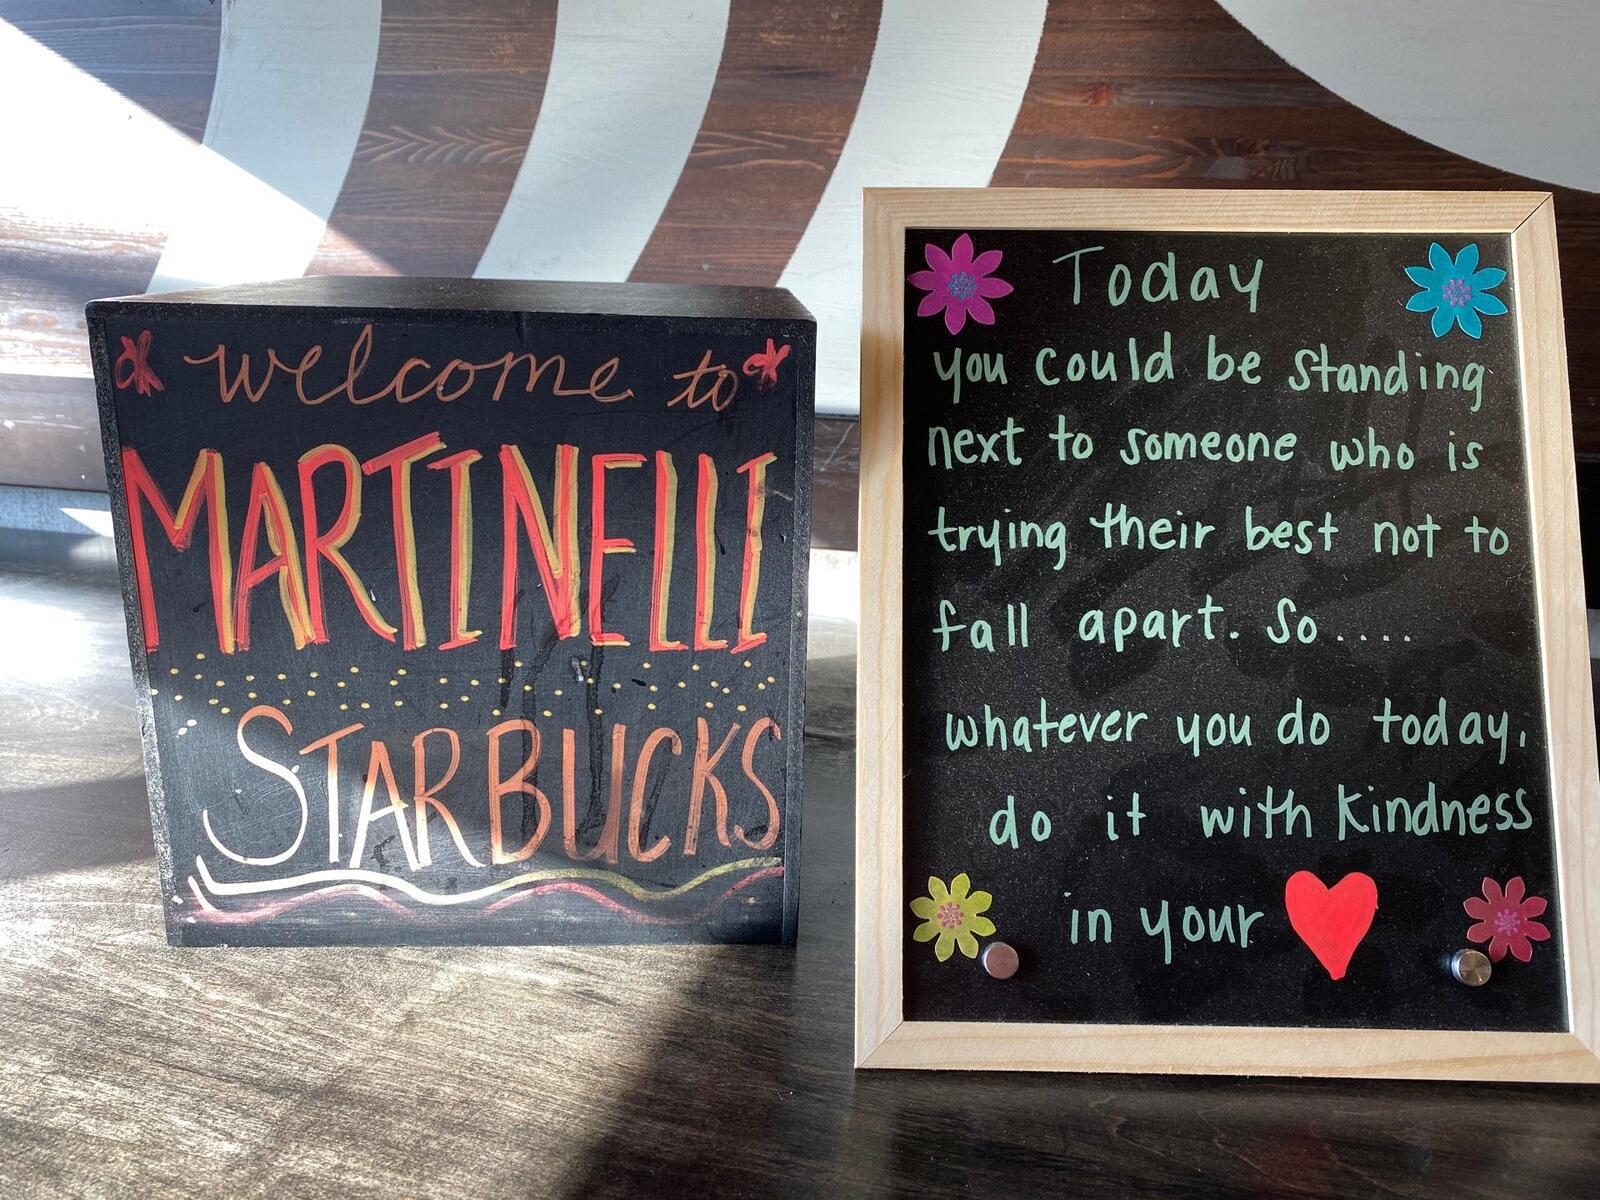 welcome to
MARTINELLI
STARBUCKS
Today
you could be standing
next to someone who is
trying their best not to
fall apart. So....
whatever you do today,
do it with kindness
in your